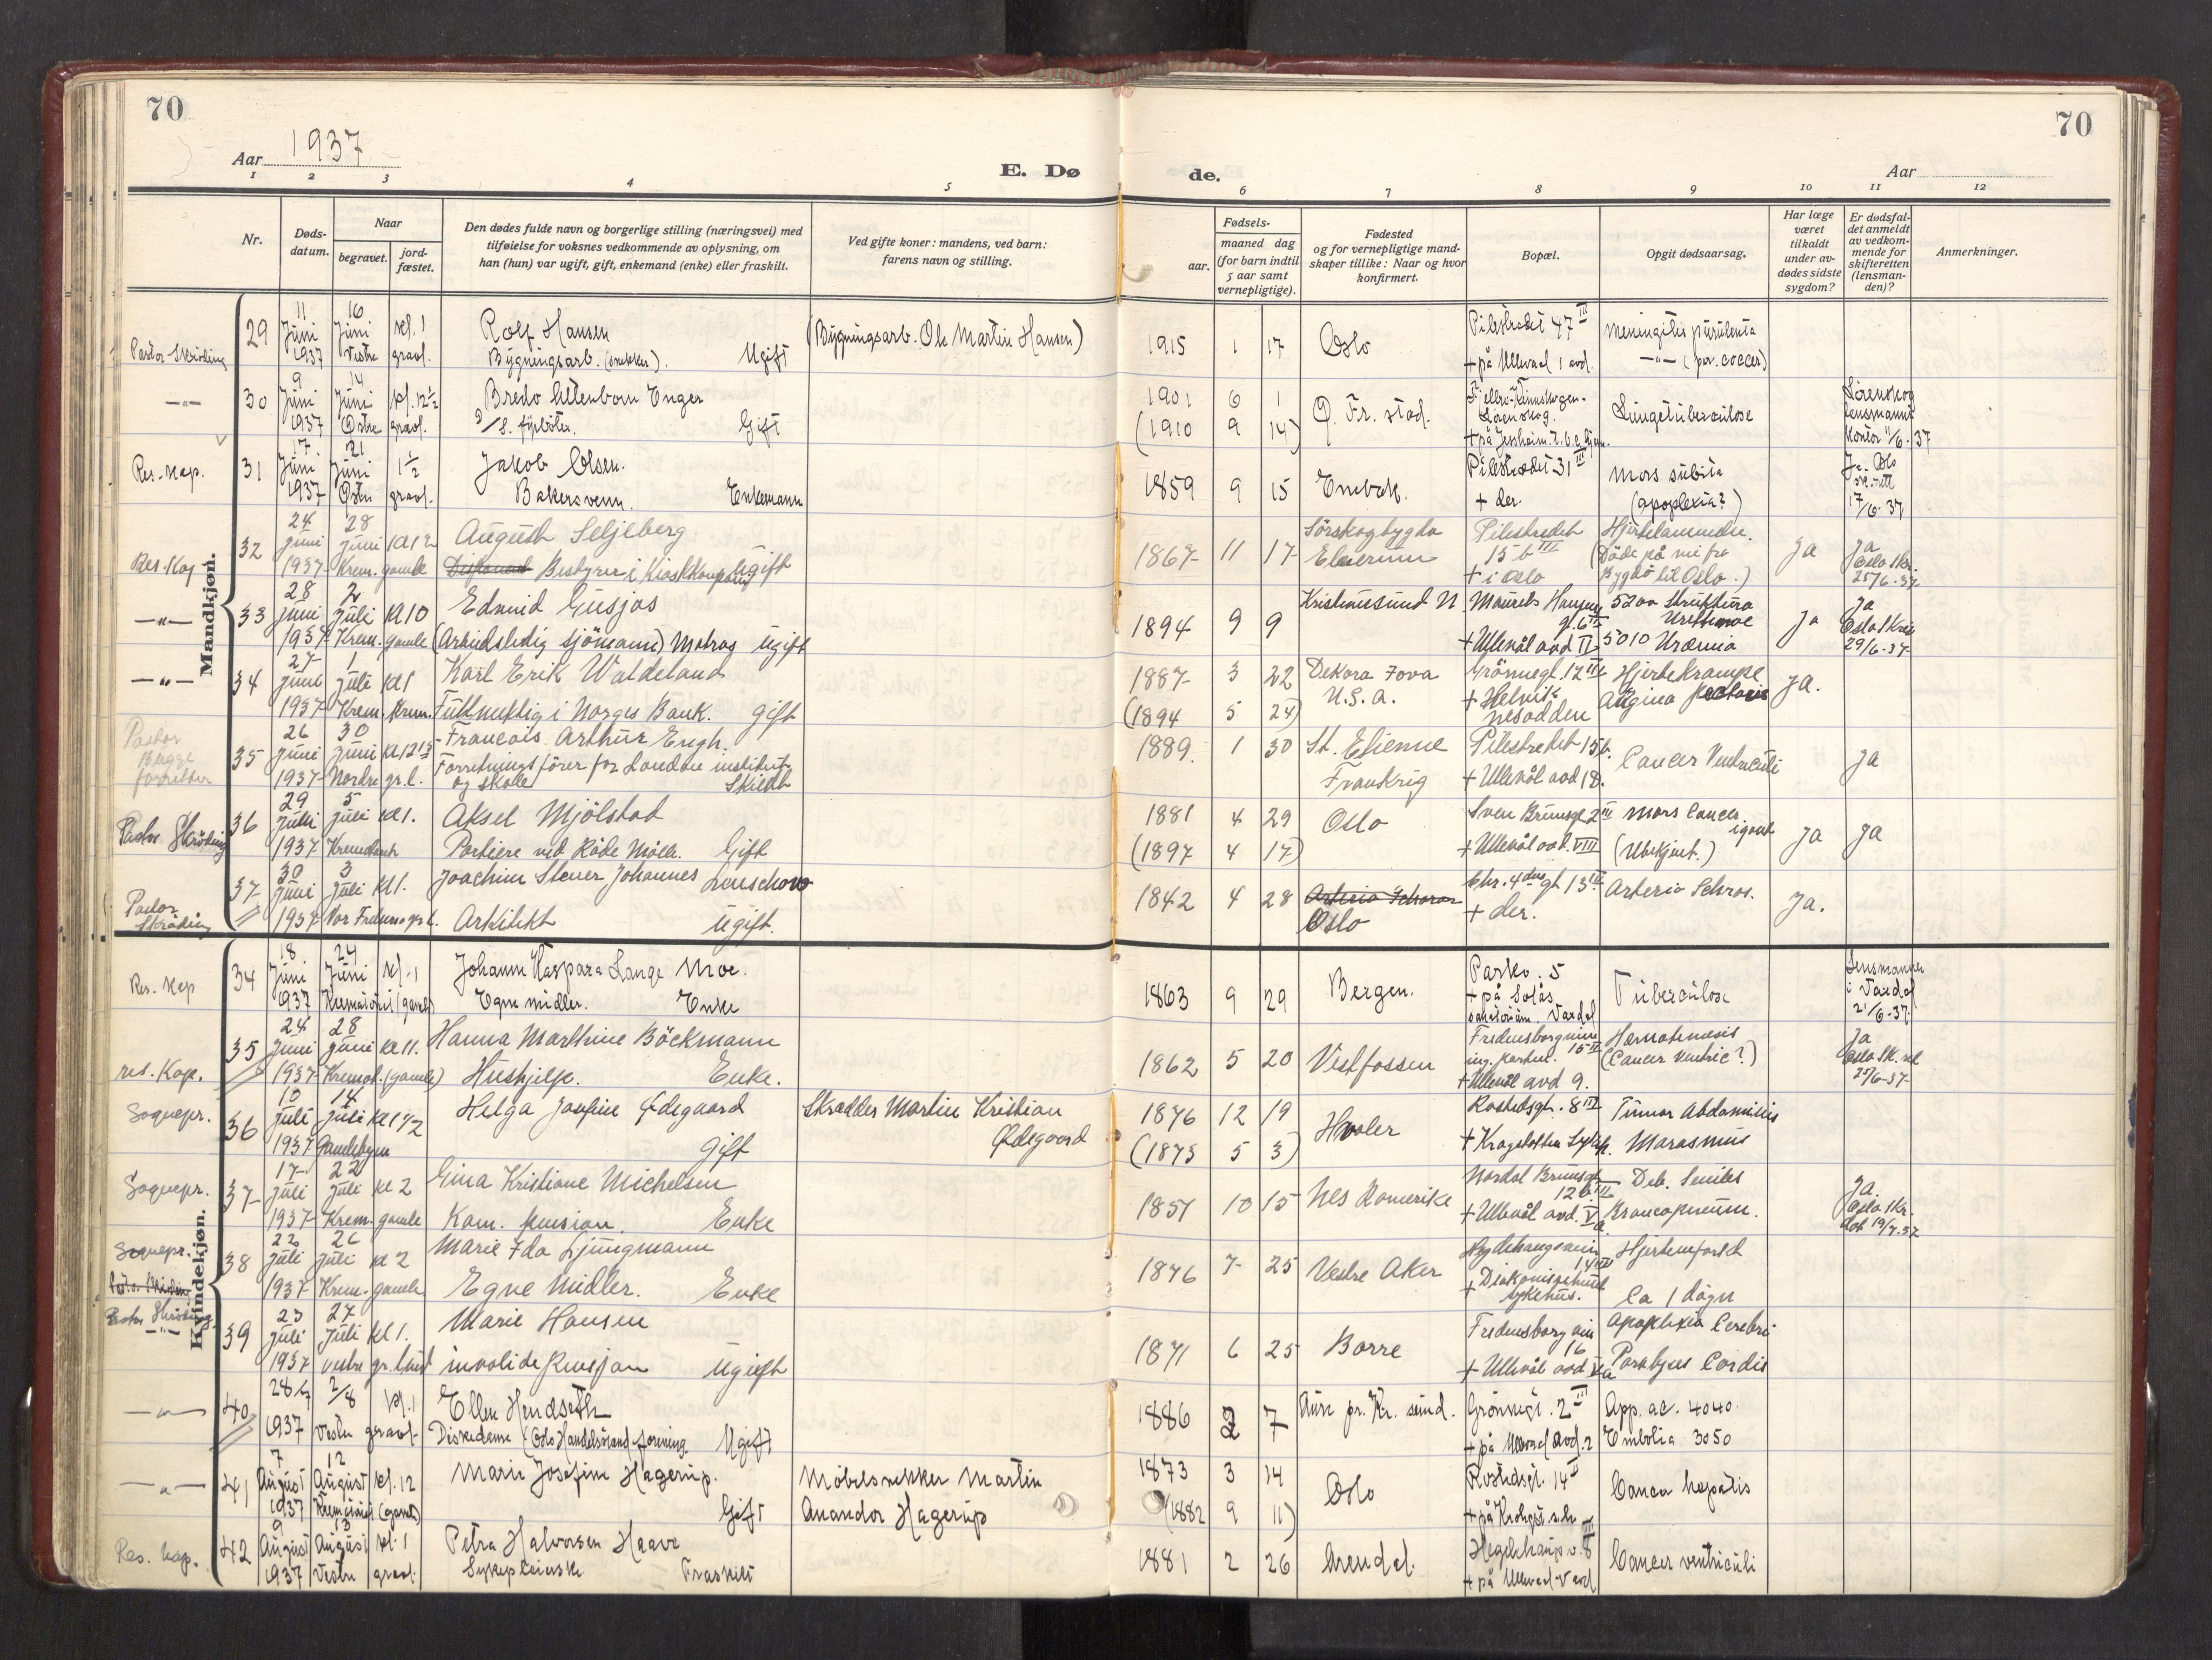 70
70
Aar 1937
E. Dø
de.
Aar
1 2 3 4 5 6 7 8 9 10 11 12
Nr.
Døds-
datum.
Naar
begravet.
jord-
fæstet.
Den dødes fulde navn og borgerlige stilling (næringsvei) med
tilføielse for voksnes vedkommende av oplysning, om
han (hun) var ugift, gift, enkemand (enke) eller fraskilt.
Ved gifte koner: mandens, ved barn:
farens navn og stilling.
Fødsels-
aar.
maaned dag
(for barn indtil
5 aar samt
vernepligtige).
Fødested
og for vernepligtige mand-
skaper tillike: Naar og hvor
konfirmert.
Bopæl.
Opgit dødsaarsag.
Har læge
været
tilkaldt
under av-
dødes sidste
sygdom?
Er dødsfal-
det anmeldt
av vedkom-
mende for
skifteretten
(lensman-
den)?
Anmerkninger.
Mandkjøn.
29
11 Juni 1937
16 Juni Vestre
kl. 1 gravl.
Rolf Hansen
Bygningsarb. (snekker). Ugift
(Bygningsarb. Ole Martin Hansen)
1915 1 17
Oslo
Pilestredet 47 III
+ på Ullevaal 1 avd.
Meningitis purulenta
30
9 Juni 1937
14 Juni Østre
kl. 12½ gravl.
Bredo Uttenborn Enger
Gift
1901 6 1
(1910 9 14)
Lungetuberculose
Lørenskog
lensmanns
kontor 11/6-37
Res. Kap.
31
17 Juni 1937
21 Juni Østre
1½ gravl.
Jakob Olsen.
Bakersvenn. Enkemann
1859 9 15
Enebak.
Pilestredet 31 III
+ der.
Mors subita
(apoplexia?)
17/6-37
Res. Kap
32
24 Juni 1937
28 Juni Krem. gamle
Kl 12
August Seljeberg
Bestyrer i Kioskkompani Ugift
1867 11 17
Sörskogbygda
Elverum
Pilestredet
15 b III
+ i Oslo
(Döde på vei fra
Bygdö til Oslo.)
Ja
Ja
Oslo Skr.
25/6-37
33
28 Juni 1937
2 Juli Krem. gamle
Kl 10
Edmund Gusjås
(Arbeidsledig sjömann) Matros Ugift
1894 9 9
Kristiansund N.
+ Ullevål avd II
5200 Struktura
Urethrae
5010 Uræmia
Ja
Ja
Oslo Skr.
29/6-37
34
27 Juni 1937
1 Juli Krem.
Kl 1 Krem.
Karl Erik Waldeland
Fullmektig i Norges Bank. Gift
1887 3 22
(1894 5 24)
Dekora Iova
U.S.A.
Grönnegt. 12 III
nesodden
Hjertekrampe
Angina pectoris
Ja.
35
26 Juni 1937
30 Juni Nordre gr. l.
Francois Arthur Engh.
Forretningsförer for London institut
og skole Skildt
1889. 1 30
St. Etienne
Frankrig
Pilestredet 15 b.
+ Ullevål avd 18.
Cancer Ventriculi
Ja
Pastor Skröding
36
29 Juni 1937
5 Juli Kremat.
kl 1.
Aksel Mjölstad
Portiere ved Röde Mölle. Gift
1881 4 29
(1897 4 17)
Oslo
Sven Brunsgt 2 III
+ Ullevål avd. VIII
(Ubekjent.)
Ja
Ja
Pastor
Skröding
37
30 Juni 1937
3 Juli Vor Frelsers gr. l.
Kl 1.
Joachim Stener Johannes Lenschow
Arkitekt Ugift.
1842 4 28
Oslo
Chr. 4des gt 13 III
+ der.
Arterio Sclros.
Ja.
Kvindekjøn.
Res. Kap
34
18 Juni 1937
24 Juni Krematoriet (gamle)
kl. 1
Johanne Kaspara Lange Moe.
Egne midler. Enke
1863 9 29
Bergen.
Parkv. 5
+ på Solås
sanatorium. Vardal
Tuberculose
Lensmannen
i Vardal
21/6-37
res. Kap.
35
24 Juni 1937
28 Juni Kremat. (gamle)
kl 11.
Hanna Marthine Böckmann
Hushjelp. Enke.
1862 5 20
Vestfossen
+ Ullevål avd 9.
Hæmatemesis
(Cancer Ventric?)
Ja
Sognepr.
36
10 Juli 1937
14 Juli Gamlebyen
Kl 1½
Helga Josefine Ødegaard
Gift
Skredder Martin Kristian
Ødegaard
1876 12 19
(1873 5 3)
Hvaler
Rostedsgt. 8 III
Tumor Abdominis
Marasmus
Sognepr.
37
17 Juli 1937
22 Juli Krem. gamle
kl 2
Gina Kristiane Michelsen
Kom. pension. Enke
1851 10 15
Nes Romerike
Nordal Brunsgt
12 b. III
+ Ullevål avd. V a
Deb. Senilis
Broncopneum.
Ja
Oslo Skr.
19/7-37
Sognepr.
38
22 Juli 1937
26 Juli Krem. gamle
kl 2
Marie Ida Ljungmann
Egne Midler. Enke
1876 7 25
Vestre Aker
+ Diakonissehuset
sykehus.
Ca 1 dögn
Pastor Skröding.
39
23 Juli 1937
27 Juli vestre gr. lund
kl 1.
Marie Hansen
invalide Pensjon Ugift
1871 6 25
Borre
Fredensborgvei
16
+ Ullevål avd V a
Apoplexia Cerebri
Paralyses Cordis
40
28/7 1937
2/8 Vestre gravl.
kl. 1
Ellen Hendseth
Diskedame (Oslo Handelsstands forening Ugift
1886 2 7
Aure pr. Kr. sund.
Grönnegt. 2 III
+ på Ullevaal avd. 2
App. ac. 4040.
Embolia 3050
41
7 August 1937
12 August Krematoriet (gamle)
kl. 12
Marie Josefine Hagerup.
Gift
Möbelsnekker Martin
Anandor Hagerup
1873 3 14
(1882 9 11)
Oslo
Rostedsgt. 14 II
Cancer hepatis
Res. Kap.
42
9 August 1937
13 August Vestre gravl.
kl. 1
Petra Halvorsen Haave
Sykepleierske Fraskilt
1881 2 26
Arendal.
+ på Ullevaal V avd
Cancer ventriculi